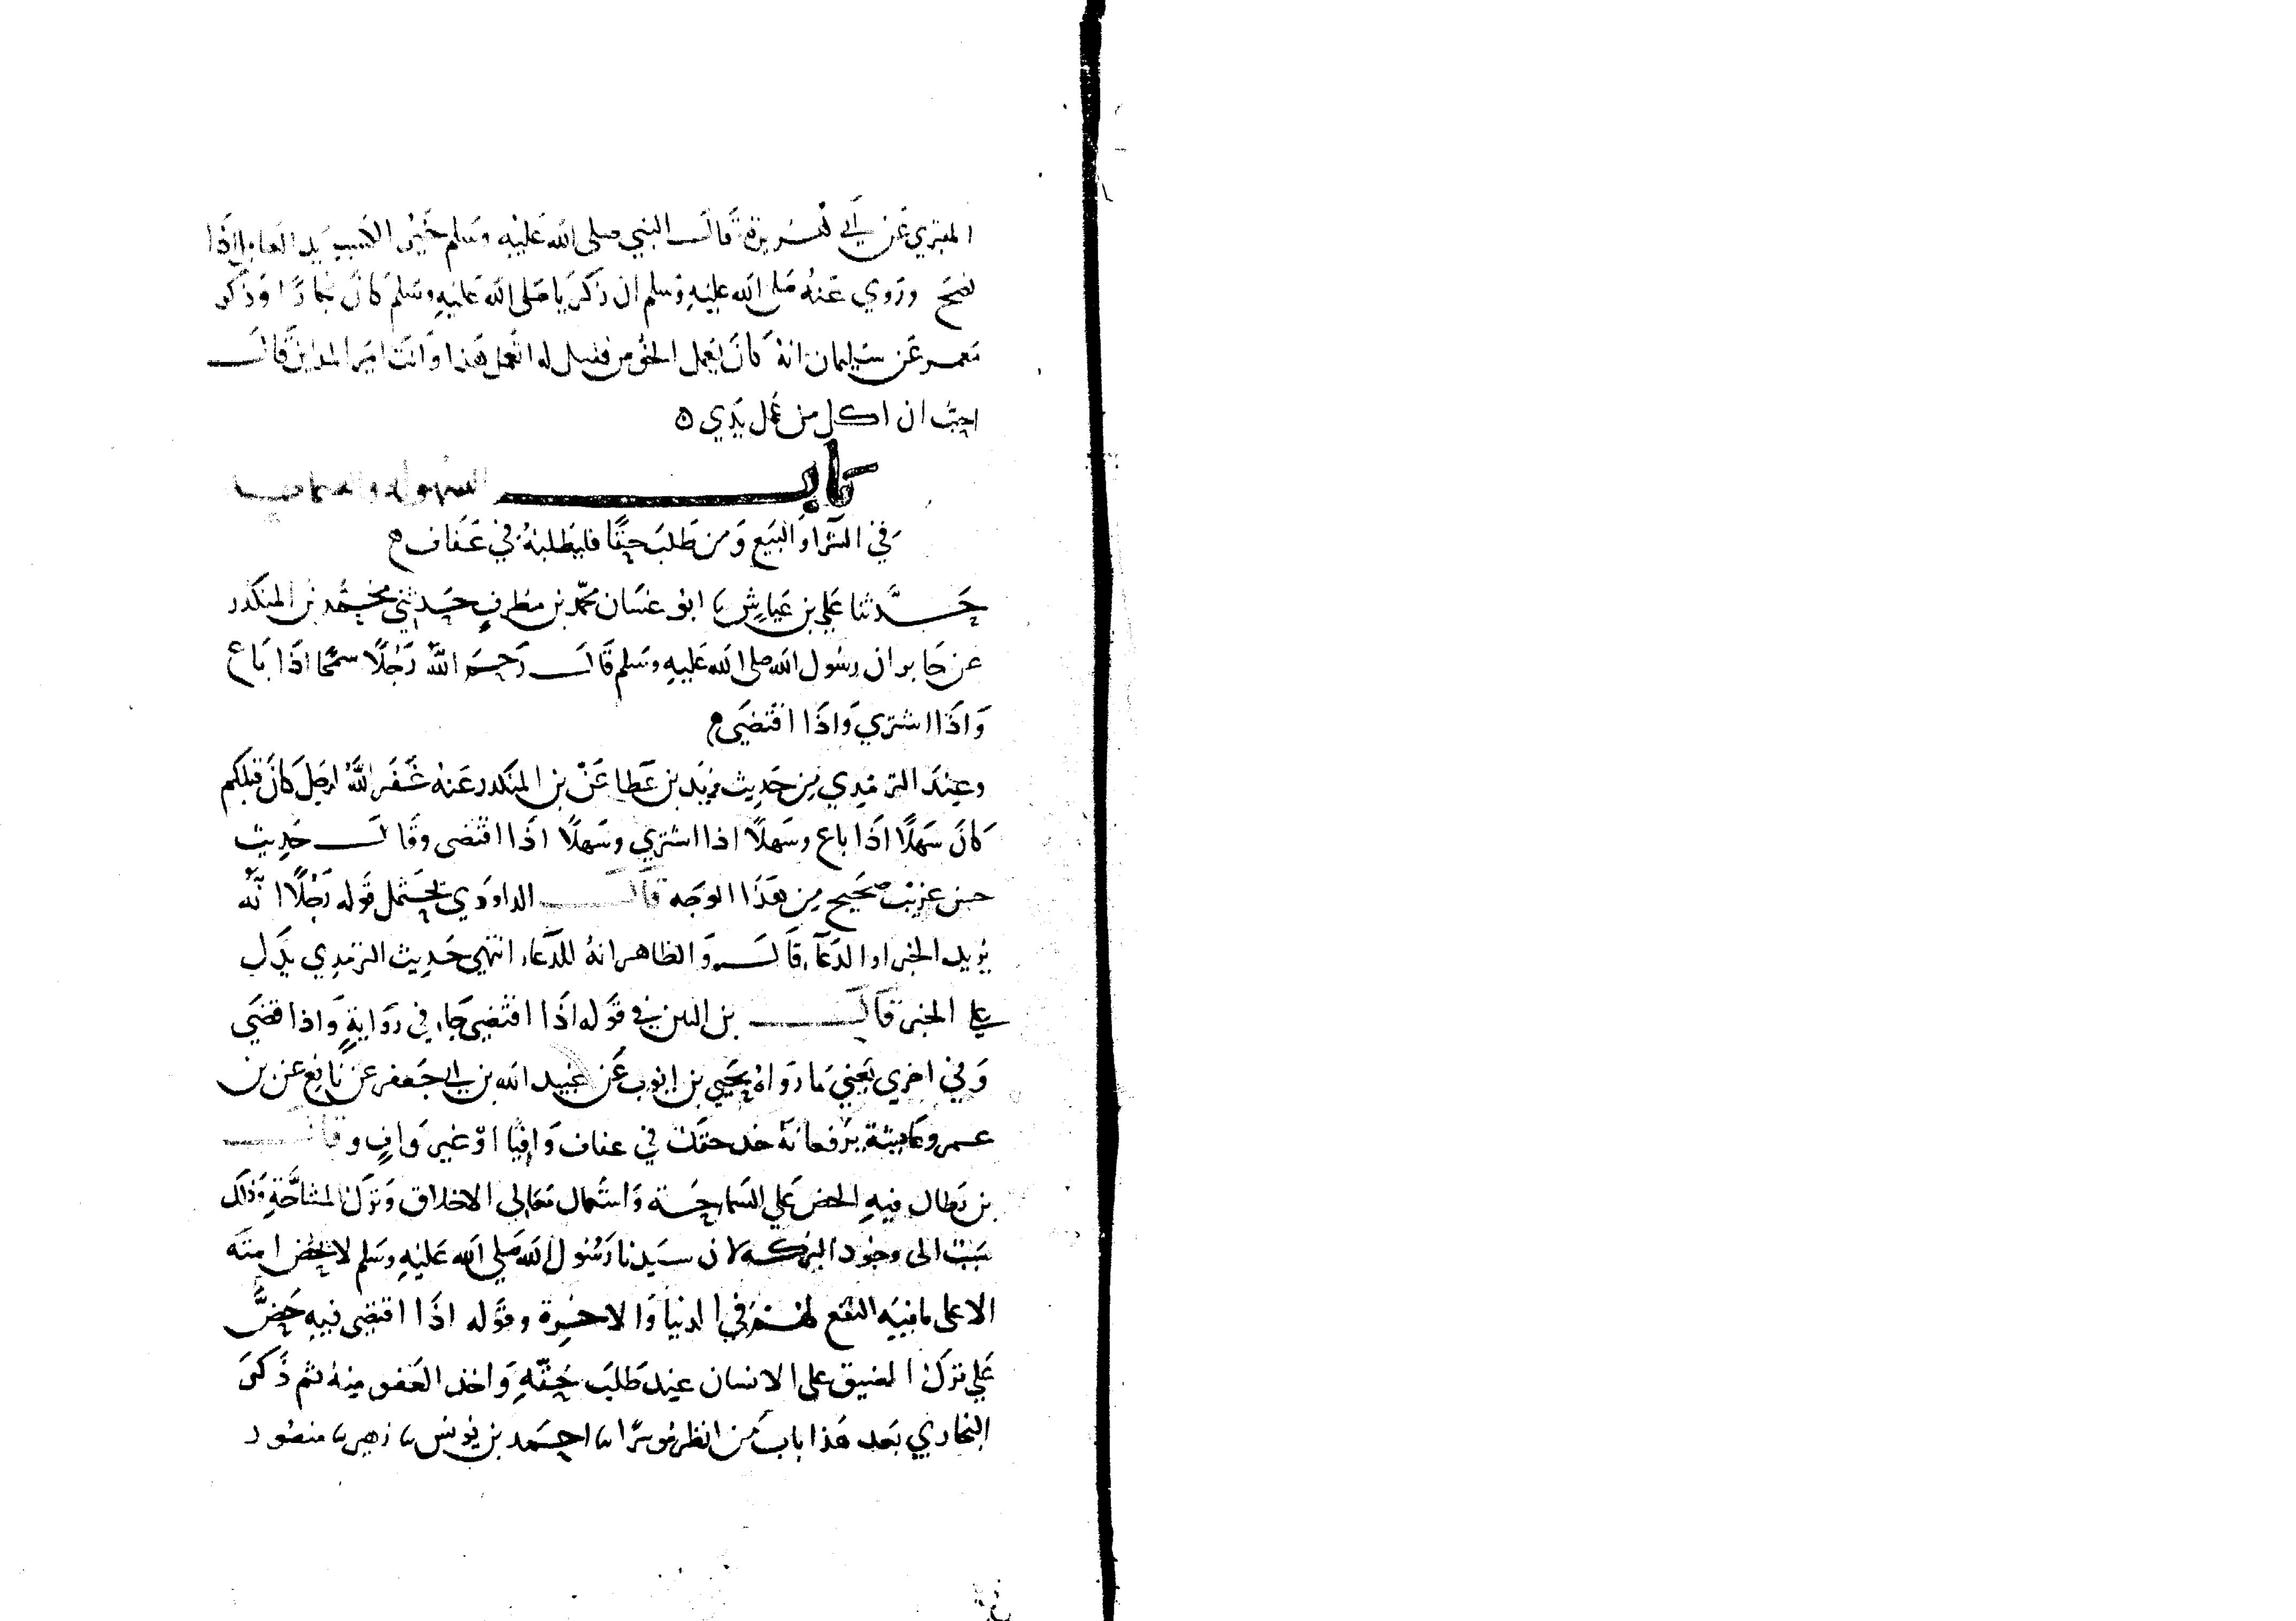 المقبري عن أبي هريرة قال النبي صلى الله عليه وسلم خير الكسب يد العامل إذا
نصح وروي عنه صلى الله عليه وسلم ان زكريا صلى الله عليه وسلم كان نجارا وذكر
معمر عن سليمان انه كان يعمل الخوص فقيل له اتعمل هذا وانت امير المداين قال
احب ان اكل من عمل يدي ه
باب السهولة والسماحة
في الشرا والبيع ومن طلب حقا فليطلبه في عفاف
حدثنا علي بن عياش نا ابو غسان محمد بن مطرف حدثني محمد بن المنكدر
عن جابر ان رسول الله صلى الله عليه وسلم قال رحم الله رجلا سمحا اذا باع
واذا اشتري واذا اقتضي
وعند الترمذي من حديث زيد بن عطا عن بن المنكدر عنه غفر الله لرجل كان قبلكم
كان سهلا اذا باع وسهلا اذا اشتري وسهلا اذا اقتضى وقال حديث
حسن غريب صحيح من هذا الوجه قال الداودي يحتمل قوله رجلا انه
يريد الخبر او الدعا، قال والظاهر انه للدعاء انتهي حديث الترمذي يدل
علي الخبر قال بن التين في قوله اذا اقتضي جاء في رواية واذا قضي
وفي اخري يعني ما رواه يحيي بن ايوب عن عبيد الله بن ابي جعفر عن نافع عن بن
عمر وعايشة يرفعانه خذ حقك في عفاف وافيا او غير واف وقال
بن بطال فيه الحض علي السماحة واستعمال معالي الاخلاق وترك المشاحة وذلك
سبب الى وجود البركة لان سيدنا رسول الله صلي الله عليه وسلم لا يحض امته
الا على ما فيه النفع لهم في الدنيا والاخرة وقوله اذا اقتضى فيه حض
علي ترك التضيق على الانسان عند طلب حقه واخذ العفو منه ثم ذكر
البخاري بعد هذا باب من انظر موسرا نا احمد بن يونس نا زهير نا منصور